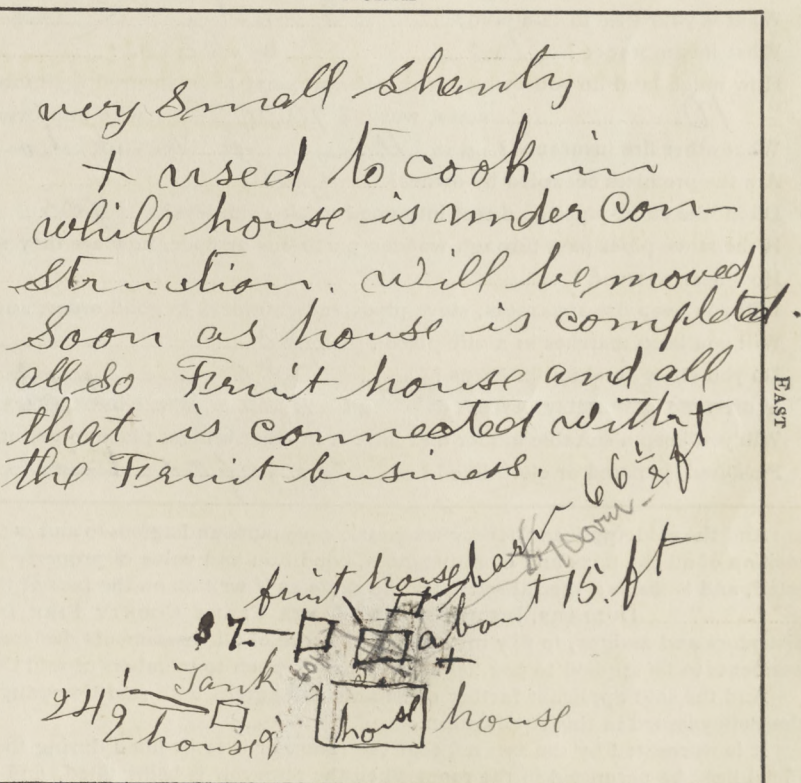 very small shanty
+ used to cook in
while house is under con-
struction. Will be moved
soon as house is completed.
allso Fruit house and all
that is connected with +
the Fruit business.
EAST
barn 66 1/2 ft
fruit house
about 15. ft
$7.
+
Tank
24 1/2
house
house
house